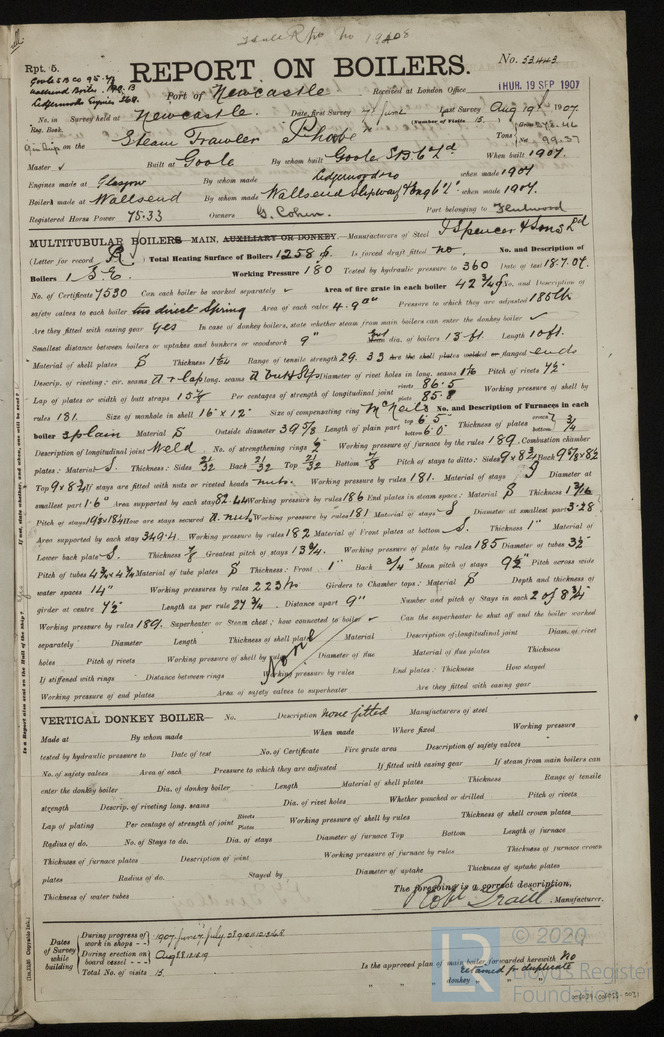 Rpt. 5.
Goole S B Co 95.
Wallsend Boiler No. B
Ledgerwoods Engines 368.
REPORT ON BOILERS.
No. 53443
Port of Newcastle
Received at London Office THUR. 19 SEP 1907
No. in Survey held at Newcastle. Date, first Survey 7th June Last Survey Aug 19th 1907.
Reg. Book. (Number of Visits 15.)
on the Steam Trawler Phoebe Tons Gross 278.46 Net 99.37
Master Built at Goole By whom built Goole S B Co Ld When built 1907.
Engines made at Glasgow By whom made when made 1907
Boilers made at Wallsend By whom made Wallsend Slipway & Eng Co Ld when made 1907.
Registered Horse Power 75.33 Owners G. Cohen. Port belonging to Fleetwood
MULTITUBULAR BOILERS— MAIN, AUXILIARY OR DONKEY.—Manufacturers of Steel J Spencer & Sons Ld
(Letter for record R) Total Heating Surface of Boilers 1258 Is forced draft fitted no. No. and Description of
Boilers 1 S.E. Working Pressure 180 Tested by hydraulic pressure to 360 Date of test 18.7.07.
No. of Certificate 7530 Can each boiler be worked separately Area of fire grate in each boiler 42 3/4 No. and Description of
safety valves to each boiler two direct Spring Area of each valve 4.9" Pressure to which they are adjusted 185 lb
Are they fitted with easing gear yes In case of donkey boilers, state whether steam from main boilers can enter the donkey boiler
Smallest distance between boilers or uptakes and bunkers or woodwork 9" dia. of boilers 13 ft. Length 10 ft.
Material of shell plates S Thickness Range of tensile strength 29.33 Are the shell plates welded or flanged ends
Descrip. of riveting: cir. seams d r lap long. seams Diameter of rivet holes in long. seams Pitch of rivets 7 1/2
Lap of plates or width of butt straps Per centages of strength of longitudinal joint rivets 86.5 plate 85.8 Working pressure of shell by
rules 181. Size of manhole in shell 16" x 12" Size of compensating ring McNeils No. and Description of Furnaces in each
boiler 3 plain Material S Outside diameter 39 5/8 Length of plain part top 6.5 bottom 6.0 Thickness of plates crown bottom 3/4
Description of longitudinal joint Weld. No. of strengthening rings Working pressure of furnace by the rules 189. Combustion chamber
plates: Material S. Thickness: Sides 21/32 Back 21/32 Top 21/32 Bottom 7/8 Pitch of stays to ditto: Sides 9 x 8 3/4 Back 9 5/8 x 8 1/2
Top 9 x 8 3/4 If stays are fitted with nuts or riveted heads nuts. Working pressure by rules 181. Material of stays Diameter at
smallest part 1.6" Area supported by each stay 82.44 Working pressure by rules 186 End plates in steam space: Material S Thickness 1 3/16
Pitch of stays How are stays secured d. nuts Working pressure by rules 181 Material of stays S Diameter at smallest part 3.28
Area supported by each stay 349.4. Working pressure by rules 182 Material of Front plates at bottom S. Thickness 1" Material of
Lower back plate S. Thickness 7/8 Greatest pitch of stays 13 3/4. Working pressure of plate by rules 185 Diameter of tubes 3 1/2
Pitch of tubes 4 3/4 x 4 3/4 Material of tube plates S Thickness: Front 1" Back 3/4" Mean pitch of stays 9 1/2" Pitch across wide
water spaces 14" Working pressures by rules 223 lbs Girders to Chamber tops: Material S Depth and thickness of
girder at centre 7 1/2 Length as per rule 27 3/4. Distance apart 9" Number and pitch of Stays in each 2 of 8 3/4"
Working pressure by rules 189. Superheater or Steam chest; how connected to boiler Can the superheater be shut off and the boiler worked
separately Diameter Length Thickness of shell plates Material Description of longitudinal joint Diam. of rivet
holes Pitch of rivets Working pressure of shell by rules None Diameter of flue Material of flue plates Thickness
If stiffened with rings Distance between rings Working pressure by rules End plates: Thickness How stayed
Working pressure of end plates Area of safety valves to superheater Are they fitted with easing gear
VERTICAL DONKEY BOILER— No. Description None fitted Manufacturers of steel
Made at By whom made When made Where fixed Working pressure
tested by hydraulic pressure to Date of test No. of Certificate Fire grate area Description of safety valves
No. of safety valves Area of each Pressure to which they are adjusted If fitted with easing gear If steam from main boilers can
enter the donkey boiler Dia. of donkey boiler Length Material of shell plates Thickness Range of tensile
strength Descrip. of riveting long. seams Dia. of rivet holes Whether punched or drilled Pitch of rivets
Lap of plating Per centage of strength of joint Rivets Plates Working pressure of shell by rules Thickness of shell crown plates
Radius of do. No. of Stays to do. Dia. of stays Diameter of furnace Top Bottom Length of furnace
Thickness of furnace plates Description of joint Working pressure of furnace by rules Thickness of furnace crown
plates Radius of do. Stayed by Diameter of uptake Thickness of uptake plates
Thickness of water tubes
The foregoing is a correct description,
Manufacturer.
Dates of Survey while building
During progress of work in shops - - 1907. June 7. July
During erection on board vessel - - - Aug
Total No. of visits 15.
Is the approved plan of main boiler forwarded herewith No
retained for duplicate
" " " donkey " " "
© 2020
Lloyd's Register
Foundation